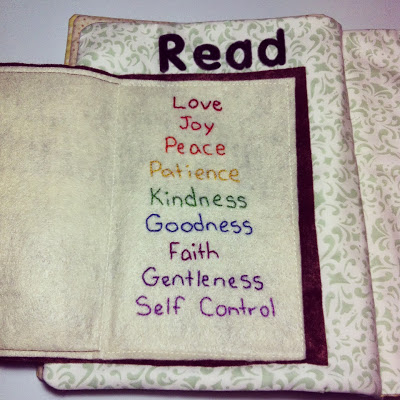 Read
Love
Joy
Peace
Patience
Kindness
Goodness
Faith
Gentleness
Self Control